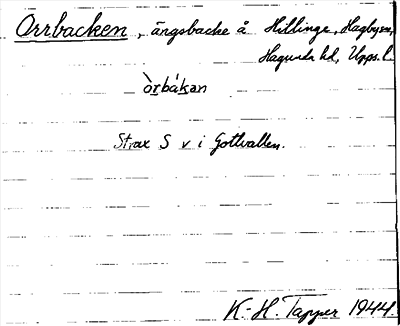 Orrbacken, ängsbacke å Hillinge, Hagbysn,
Hagunda hd, Upps. l.
òrbákan
Strax S v i Gottvallen.
K.-H. Tapper 1944.